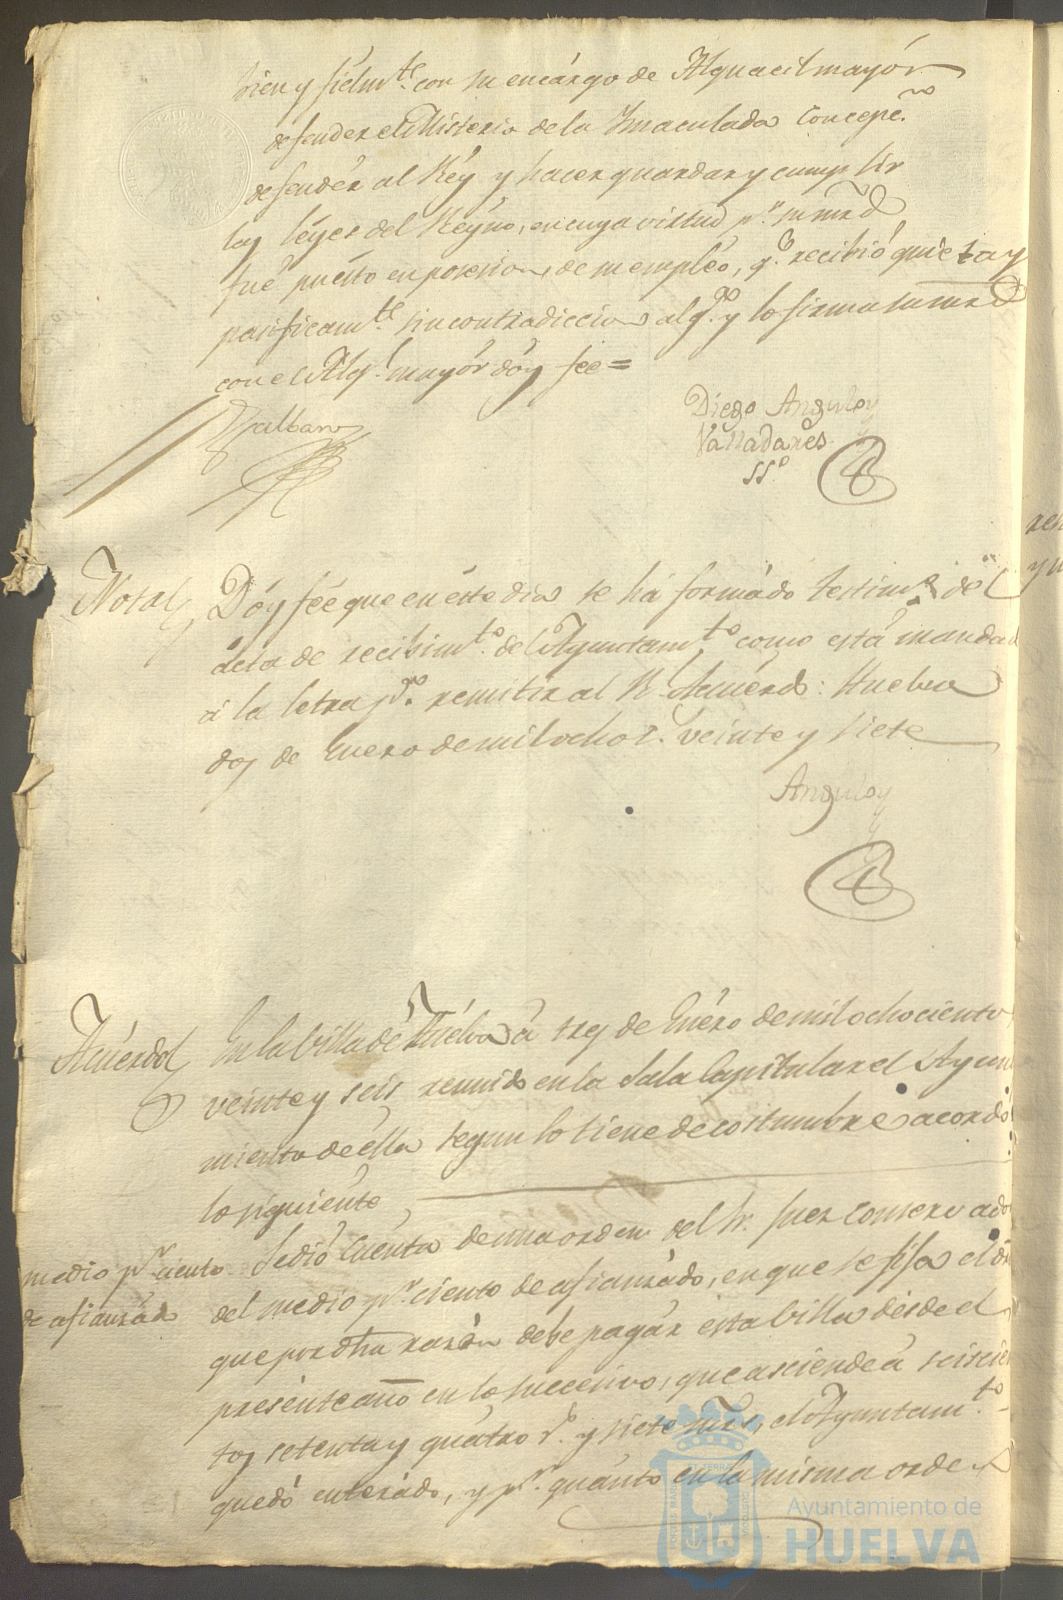 bien y fielmte. con su encárgo de Alguacil mayór
defender el Misterio de la Ynmaculada Concepcn.
defendér al Réy y hacer guardar y cumplir
las léyes del Réyno, en cuya virtud pr. su mrd
fué puésto en posesion de su empléo, qe. recibió quieta y
pacificamte. sin contradiccion algna. y lo firma su mrd
con el Algl. mayór dóy fée=
Galbano
Diego Angulo y
Valladares
SSo.
Nota
Dóy fée que en éste dia se há formádo testimo. del
ácta de recibimto. del Ayuntamto. como está mandado
á la letra pa. remitir al Rl. Acuérdo: Huelva
dos de Enero de mil ochos. veinte y siete
Angulo
Acuérdo
En la Villa de Huélva á tres de Enéro de mil ochocientos
veinte y seis reunido en la Sala Capitular el Ayunta
miento de élla segun lo tiene de costumbre acordó
lo siguiente
medio pr. ciento
de afianzádo
Se dió Cuénta de una orden del Sr. Juez Conservador
del medio pr. ciento de afianzádo, en que se fija el
que por dha razón debe pagár esta Villa désde el
presénte año en lo succesivo, que asciénde á seiscien
tos seténta y quátro rs. y siete mrs, el Ayuntamto.
quedó enterádo, y pr. quánto en la misma orden
Ayuntamiento de
HUELVA